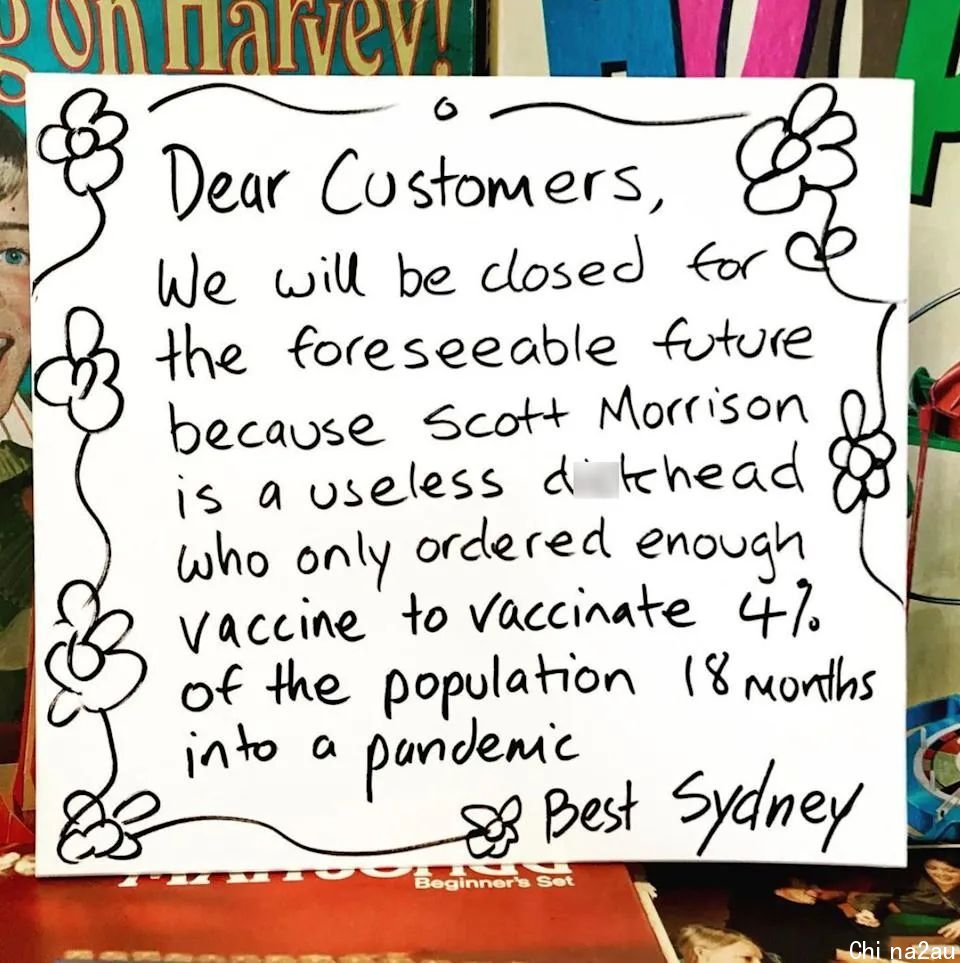 on Harvey!
Dear Customers,
We will be closed for
the foreseeable future
because Scott Morrison
is a useless
who only ordered enough
vaccine to vaccinate 4%
of the population 18 months
into a pandemic
Best Sydney
Beginner's Set
China2au